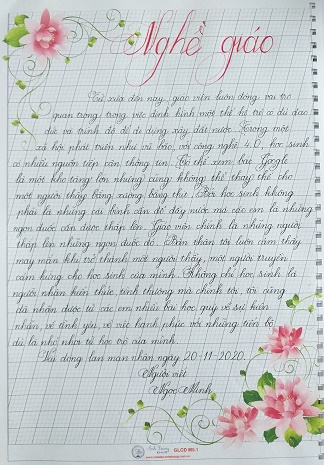 Nghề giáo
Từ xưa đến nay, giáo viên luôn đóng vai trò
quan trọng trong việc định hình một thế hệ trẻ có đủ đạo
đức và trình độ để đi dựng xây đất nước. Trong một
xã hội phát triển như vũ bão, với công nghệ 4.0, học sinh
có nhiều nguồn tiếp cận thông tin. Có thể xem bác Google
là một kho tàng lớn nhưng cũng không thể thay thế cho
một người thầy bằng xương bằng thịt. Bởi học sinh không
phải là những cái bình cần đổ đầy nước mà các em là những
ngọn đuốc cần được thắp lên. Giáo viên chính là những người
thắp lên những ngọn đuốc đó. Bản thân tôi luôn cảm thấy
may mắn khi trở thành một người thầy, một người truyền
cảm hứng cho học sinh của mình. Không chỉ học sinh là
người nhận kiến thức, tình thương mà chính tôi, tôi cũng
đã nhận được từ các em nhiều bài học quý về sự kiên
nhẫn, về tình yêu, về việc hạnh phúc với những tiến bộ
dù là nhỏ nhoi từ học trò của mình.
Vài dòng lan man nhân ngày 20-11-2020.
Người viết
Ngọc Minh
GLCD MS:1